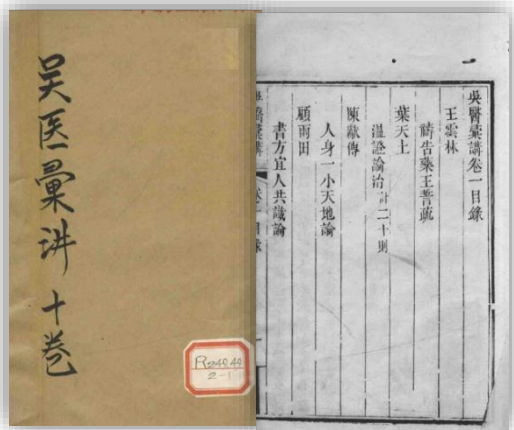 吴医彙讲 十卷
R249.49
2-1
吳醫彙講卷一目錄
王雲林
禱告藥王誓疏
葉天士
溫證論治計二十則
陳獻傳
人身一小天地論
顧雨田
書方宜人共識論
吳醫彙講 卷一目錄